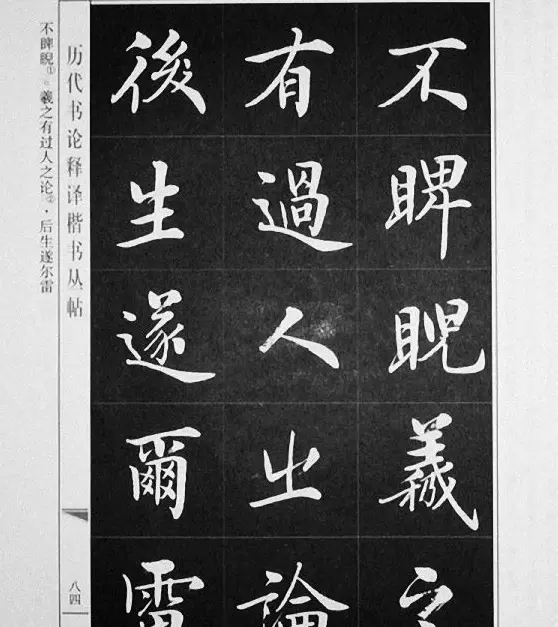 不睥睨羲之
有過人之論
後生遂爾雷
历代书论释译楷书丛帖
八四
不睥睨①。羲之有过人之论②，后生遂尔雷